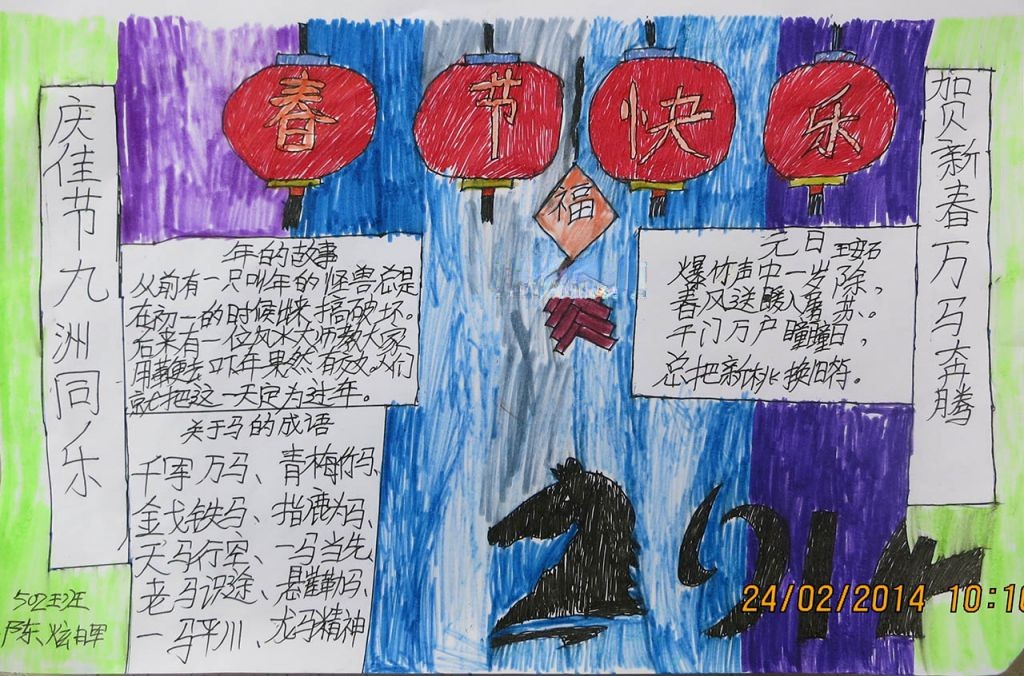 春节快乐
庆佳节九洲同乐
贺新春万马奔腾
福
年的故事
从前有一只叫年的怪兽总是
在初一的时候出来搞破坏。
后来有一位风水大师教大家
用鞭炮去吓年果然有效。人们
就把这一天定为过年。
元日 王安石
爆竹声中一岁除，
春风送暖入屠苏。
千门万户瞳瞳日，
总把新桃换旧符。
关于马的成语
千军万马、青梅竹马、
金戈铁马、指鹿为马、
天马行空、一马当先
老马识途、悬崖勒马、
一马平川、龙马精神
502班
陈炫
2014
24/02/2014 10:10